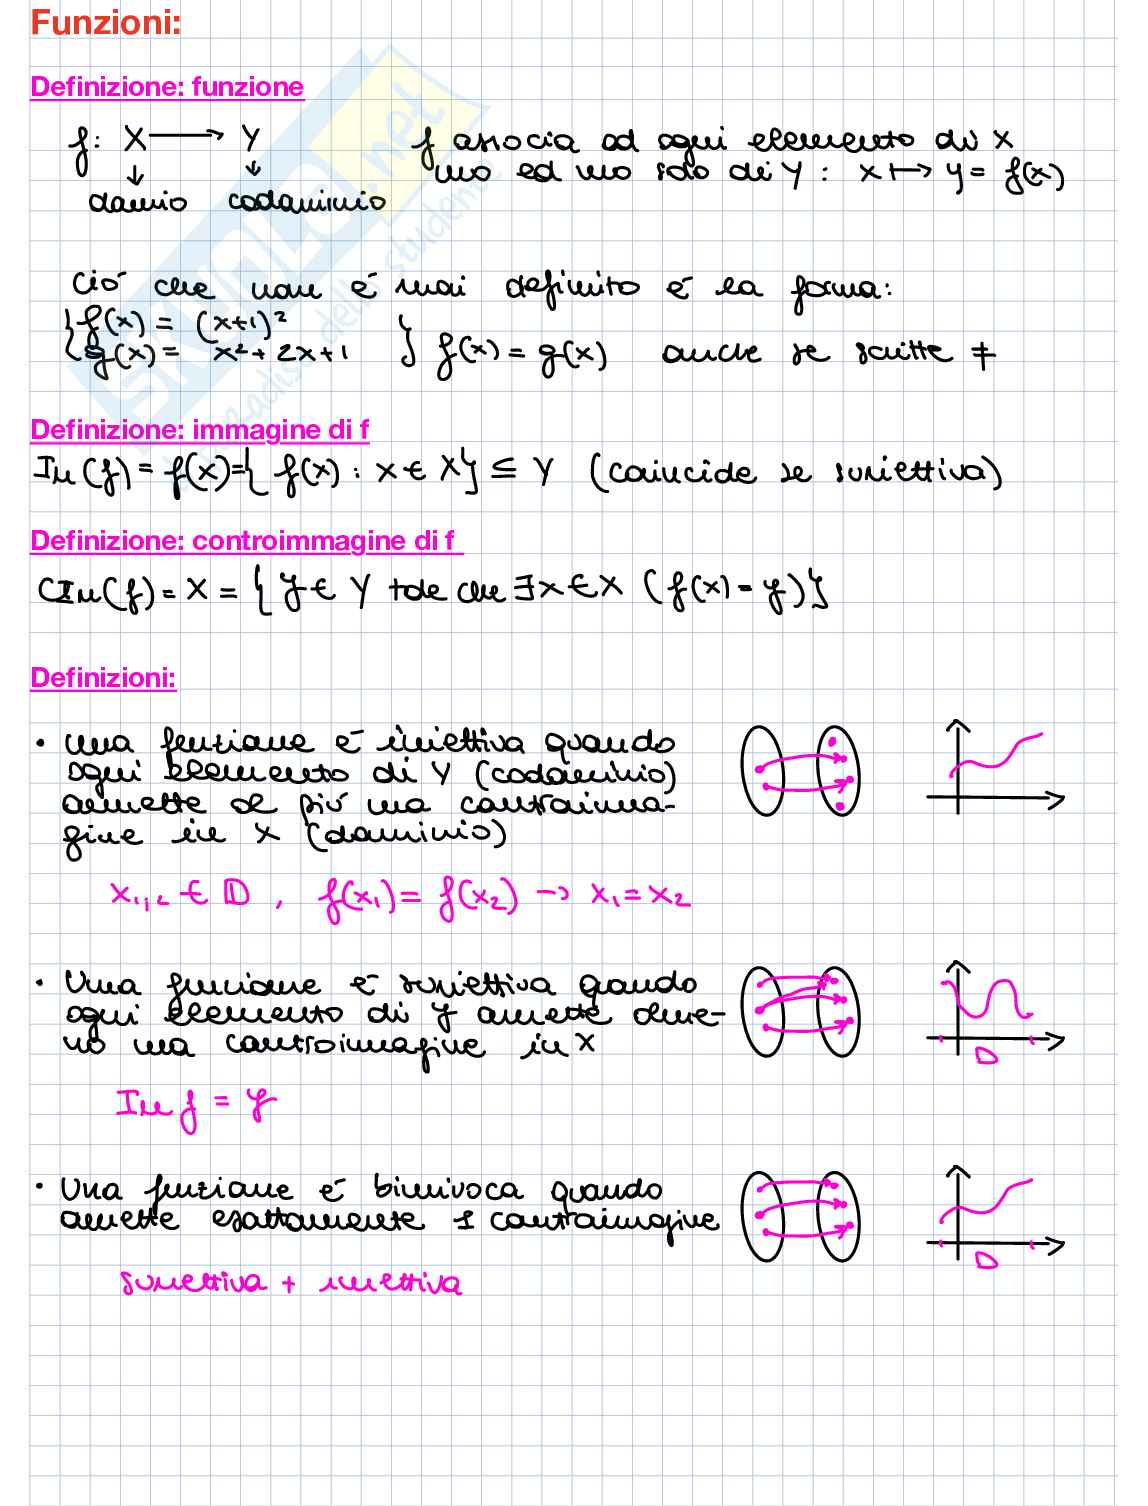 Funzioni:
Definizione: funzione
f: X ⟶ Y
↓ ↓
dominio codominio
f associa ad ogni elemento di X
uno ed uno solo di Y : x ↦ y = f(x)
Ciò che non è mai definito è la forma:
{f(x) = (x+1)²
g(x) = x² + 2x + 1 } f(x) = g(x) anche se scritte ≠
Definizione: immagine di f
Im(f) = f(x) = { f(x) : x ∈ X} ⊆ Y (coincide se suriettiva)
Definizione: controimmagine di f
CIm(f) = X = { y ∈ Y tale che ∃ x ∈ X (f(x) = y)}
Definizioni:
• una funzione è iniettiva quando
ogni elemento di Y (codominio)
ammette al più una controimma-
gine in X (dominio)
x₁,₂ ∈ D , f(x₁) = f(x₂) → x₁ = x₂
• Una funzione è suriettiva quando
ogni elemento di Y ammette alme-
no una controimmagine in X
D
Im f = Y
• Una funzione è biunivoca quando
amette esattamente 1 controimmagine
D
suriettiva + iniettiva
SKUOLA.net
il paradiso dello studente